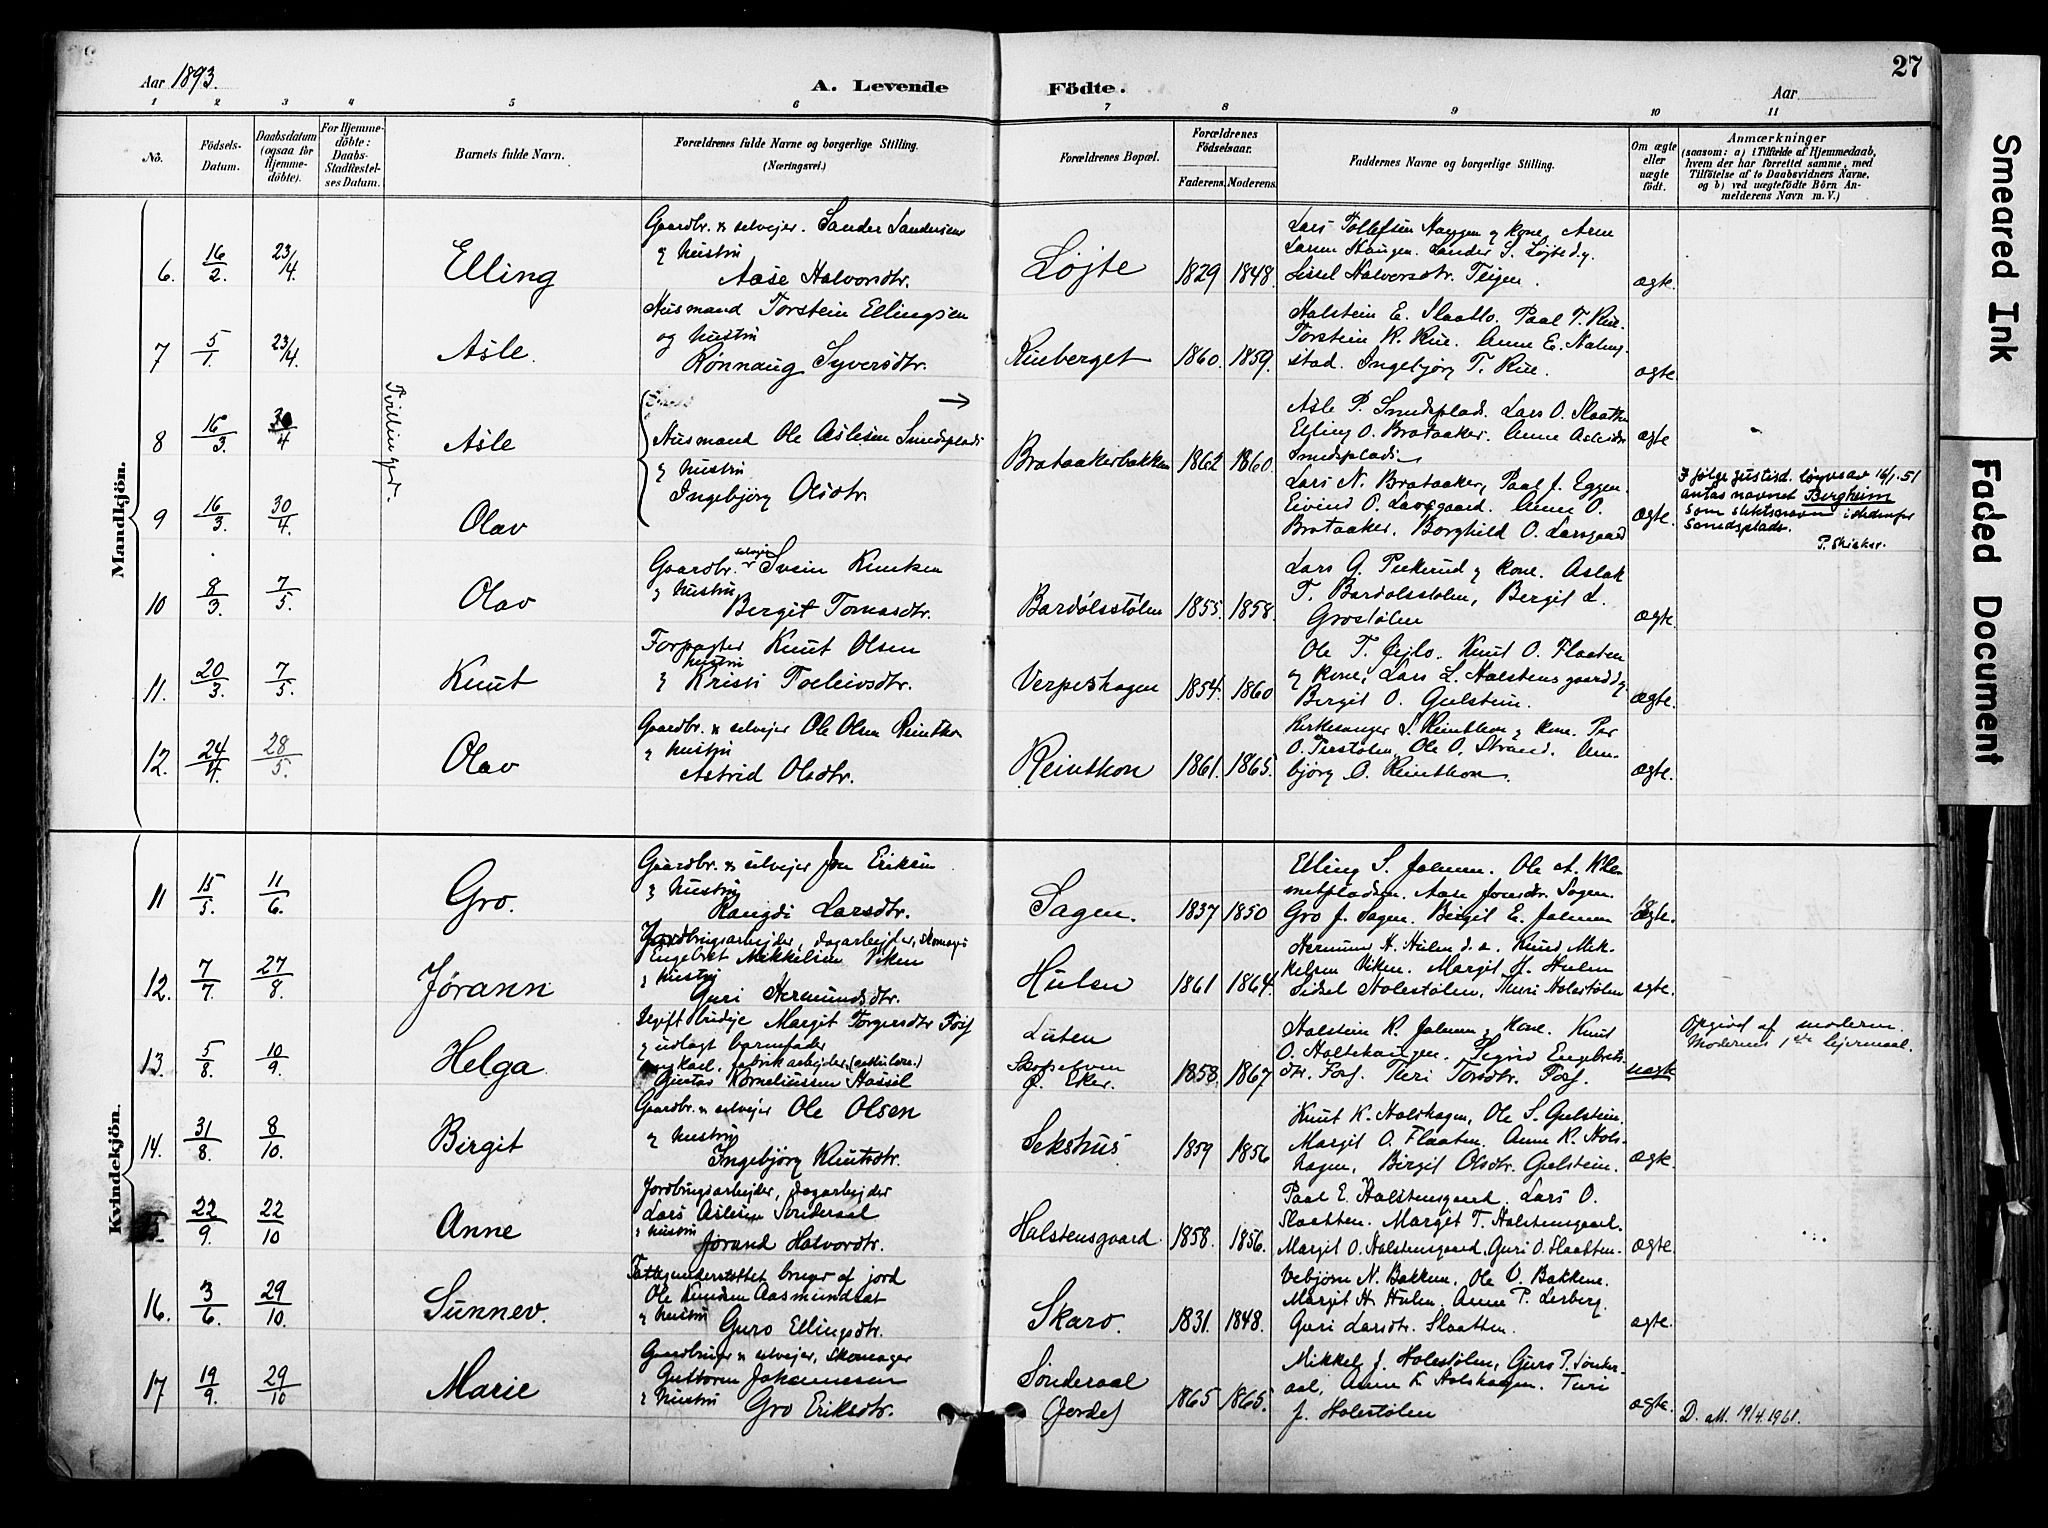 27
Aar 1893.
A. Levende
Födte.
Aar
1 2 3 4 5 6 7 8 9 10 11
No.
Födsels-Datum.
Daabsdatum (ogsaa for Hjemme-döbte).
For Hjemme-döbte: Daabs-Stadfæstel-ses Datum.
Barnets fulde Navn.
Forældrenes fulde Navne og borgerlige Stilling.
(Næringsvei.)
Forældrenes Bopæl.
Forældrenes Födselsaar.
Faderens. Moderens.
Faddernes Navne og borgerlige Stilling.
Om ægte eller uægte födt.
Anmærkninger
(saasom: a) i Tilfælde af Hjemmedaab,
hvem der har forrettet samme, med
Tilföielse af to Daabsvidners Navne,
og b) ved uægtefödte Börn An-
melderens Navn m. V.)
Mandkjön.
6. 16/2. 23/4 Elling
Gaardbr. & selvejer. Sander Sandersen
& hustru
Aase Halvorsdtr.
Løjte 1829 1848.
Lars Tollefsen Haugen & kone, Arne
Larsen Haugen. Sander S. Løjte d.y.
Sissel Halvorsdtr. Teigen.
ægte.
7 5/1. 23/4 Asle.
Husmand Torstein Ellingsen
og hustru
Rønnaug Syversdtr.
Rueberget 1860. 1859.
Halstein E. Slaatto. Paal T. Rue.
Torstein K. Rue. Anne E.
stad. Ingebjørg T. Rue.
ægte
Tvillinger.
8 16/3. 30/4 Asle
Husmand Ole Aslesen Smedsplads
& hustru
Ingebjørg Olsdtr.
Brataakerbakken 1862 1860.
Asle P. Smedsplads. Lars O. Slaatten
Elling O. Brataaker. Anne Aslesdtr
Smedsplads.
ægte
9 16/3. 30/4. Olav
Lars N. Brataaker, Paal J. Eggen.
Eivind O. Larsgaard. Anne O.
Brataaker. Borghild O. Larsgaard
ægte.
I følge justisd. løyve av 16/1.51
antas navnet Bergheim
som slektsnavn istedenfor
Smedsplads.
10 8/3. 7/5. Olav
Gaardbr. & selvejer Svein Knutsen
& hustru
Birgit Tomasdtr.
Bardølsstølen 1855. 1858.
Lars G. Piukerud & kone. Aslak
T. Bardølsstølen, Bergit L.
Grøstølen
ægte.
11. 20/3. 7/5. Knut
Forpagter Knut Olsen
& hustru Kristi Torleivsdtr.
Verpeshagen 1854. 1860
Ole T. Jejlo. Knut O. Flaaten
& kone, Lars L. Halstensgaard d.y.
Birgit O. Gulstein.
ægte.
12. 24/4. 28/5. Olav
Gaardbr. & selvejer Ole Olsen Reinton
& hustru
Astrid Olsdtr.
Reinton 1861. 1865.
Kirkesanger S. Reinton & kone. Per
O. Tuestølen, Ole O. Strand. Ann-
bjørg O. Reinton.
ægte.
Kvindekjön.
11 15/5. 11/6. Gro.
Gaardbr. & selvejer Jon Eriksen
& hustru
Rangdi Larsdtr.
Sagen. 1837 1850
Elling S. Jalmen. Ole A. Kle-
metpladsen. Aase Jonsdtr. Sagen.
Gro J. Sagen. Birgit E. Jalmen
ægte.
12. 7/7. 27/8. Jørann
Jordbrugsarbejder, dagarbejder, skomager
Engebret Mikkelsen Viken
& hustru
Guri Hermundsdtr.
Hulen 1861 1864.
Hermund H. Hulen d.æ. Knud Mik-
kelsen Viken. Margit H. Hulen
Sidsel Holestølen, Turi Holestølen
ægte.
13. 5/8. 10/9. Helga.
Ugift budeje Margit Torgersdtr Foss
& udlagt barnefader
ungkarl, fabrikarbejder,
Gustav Kornelinssen Hassel
Luten
Ø. Eker. 1858. 1867
Halstein K. Jalmen & kone. Knut
O. Haltehaugen. Sigrid Engebrets-
dtr. Foss. Turi Torsdtr. Foss.
uægte
Opgivet af moderen.
Moderens 1ste lejermaal.
14. 31/8. 8/10. Birgit
Gaardbr. & selvejer Ole Olsen
& hustru
Ingebjørg Knutsdtr.
Sekshus 1859 1856
Knut K. Halshagen, Ole S. Gulstein.
Margit O. Flaaten. Anne K. Hals-
hagen, Birgit Olsdtr. Gulstein.
ægte.
15. 22/9. 22/10 Anne
Jordbrugsarbejder, dagarbejder
Lars Aslesen Sønderaal
& hustru Jørand Halvordtr.
Halstensgaard. 1858. 1856.
Paal E. Halstensgaard. Lars O.
Slaatten. Margit T. Halstensgaard.
Margit O. Halstensgaard, Guri O. Slaatten.
ægte.
16. 3/6. 29/10. Sunnev.
Fattigunderstøttet bruger af jord
Ole Knudsen Aasmundsæt
& hustru
Guro Ellingsdtr.
Skaro. 1831. 1848.
Vebjørn N. Bakken, Ole V. Bakkene.
Margit H. Hulen. Anne P. Lesberg.
Guri Larsdtr. Slaatten.
ægte.
17 19/9. 29/10 Marie
Gaardbruger & selvejer, skomager
Guttorm Johannessen
& hustru Gro Eriksdtr.
Sønderaal
(Jordet) 1865 1865.
Mikkel J. Holestølen, Guro P. Sønder-
aal, Anne K. Halshagen. Turi
J. Holestølen
ægte.
D. all. 19/4.1961.
Smeared Ink
Faded Document